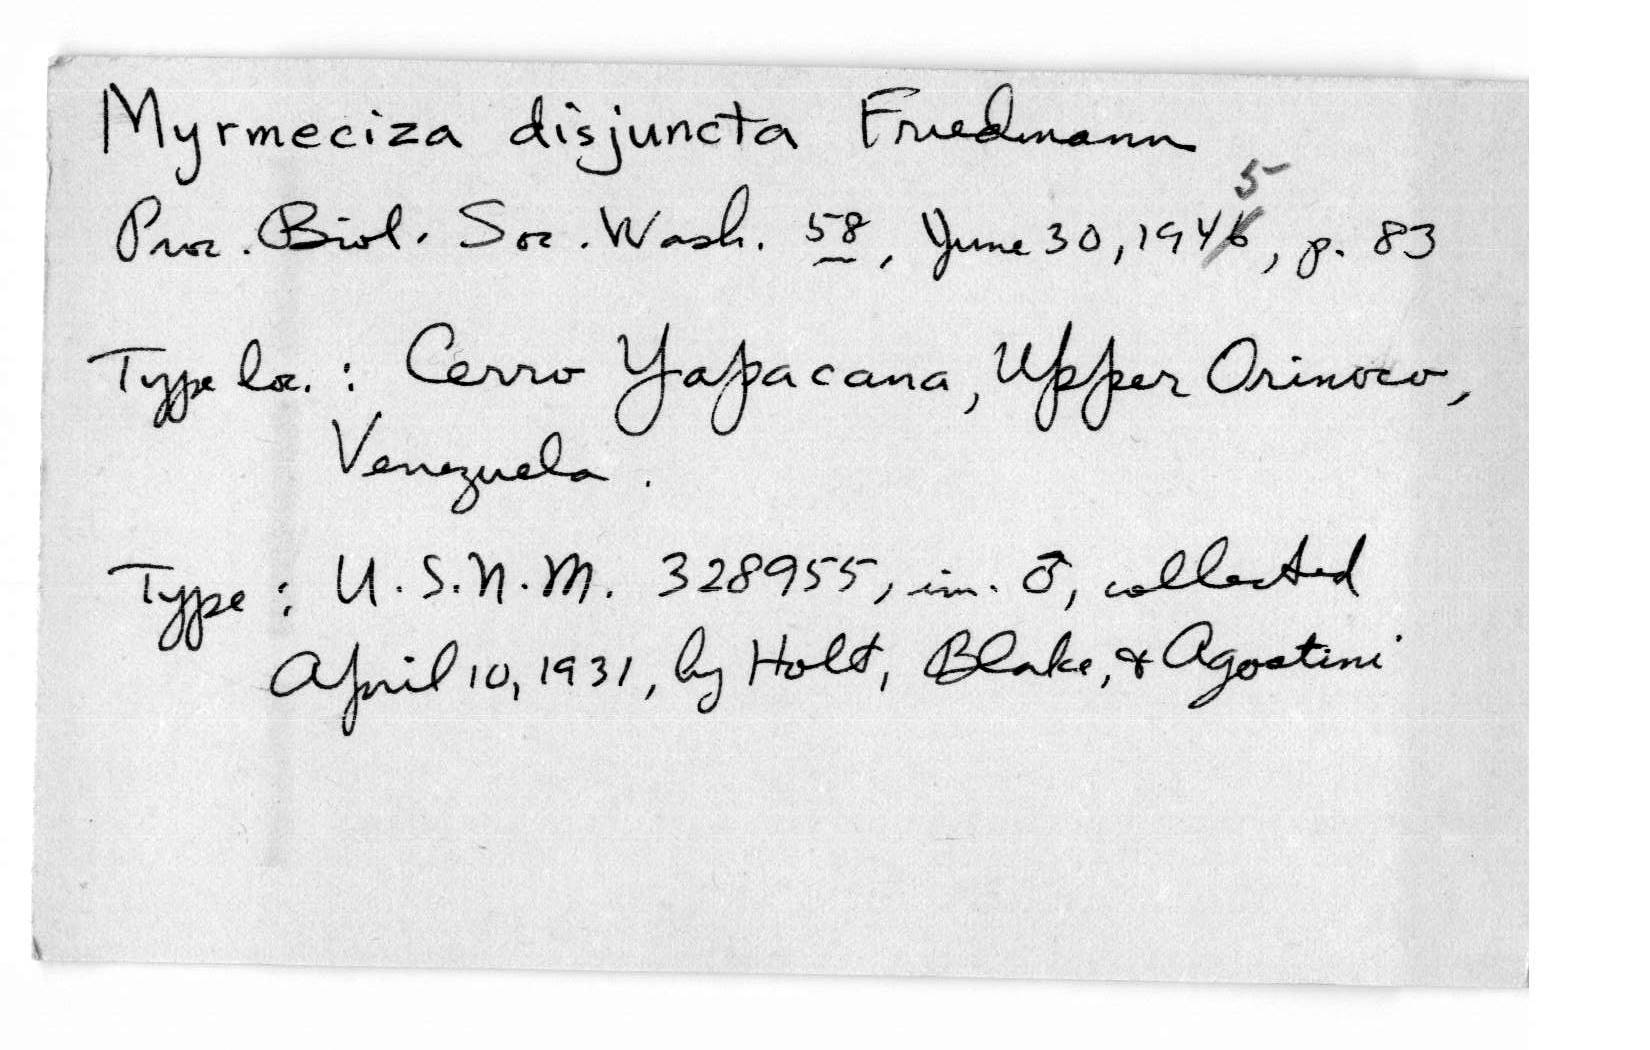 Myrmeciza disjuncta Friedmann
Proc. Biol. Soc. Wash. 58, June 30, 1945, p. 83
Type loc. : Cerro Yapacana, Upper Orinoco,
Venezuela.
Type : U.S.N.M. 328955, im. ♂, collected
April 10, 1931, by Holt, Blake, & Agostini